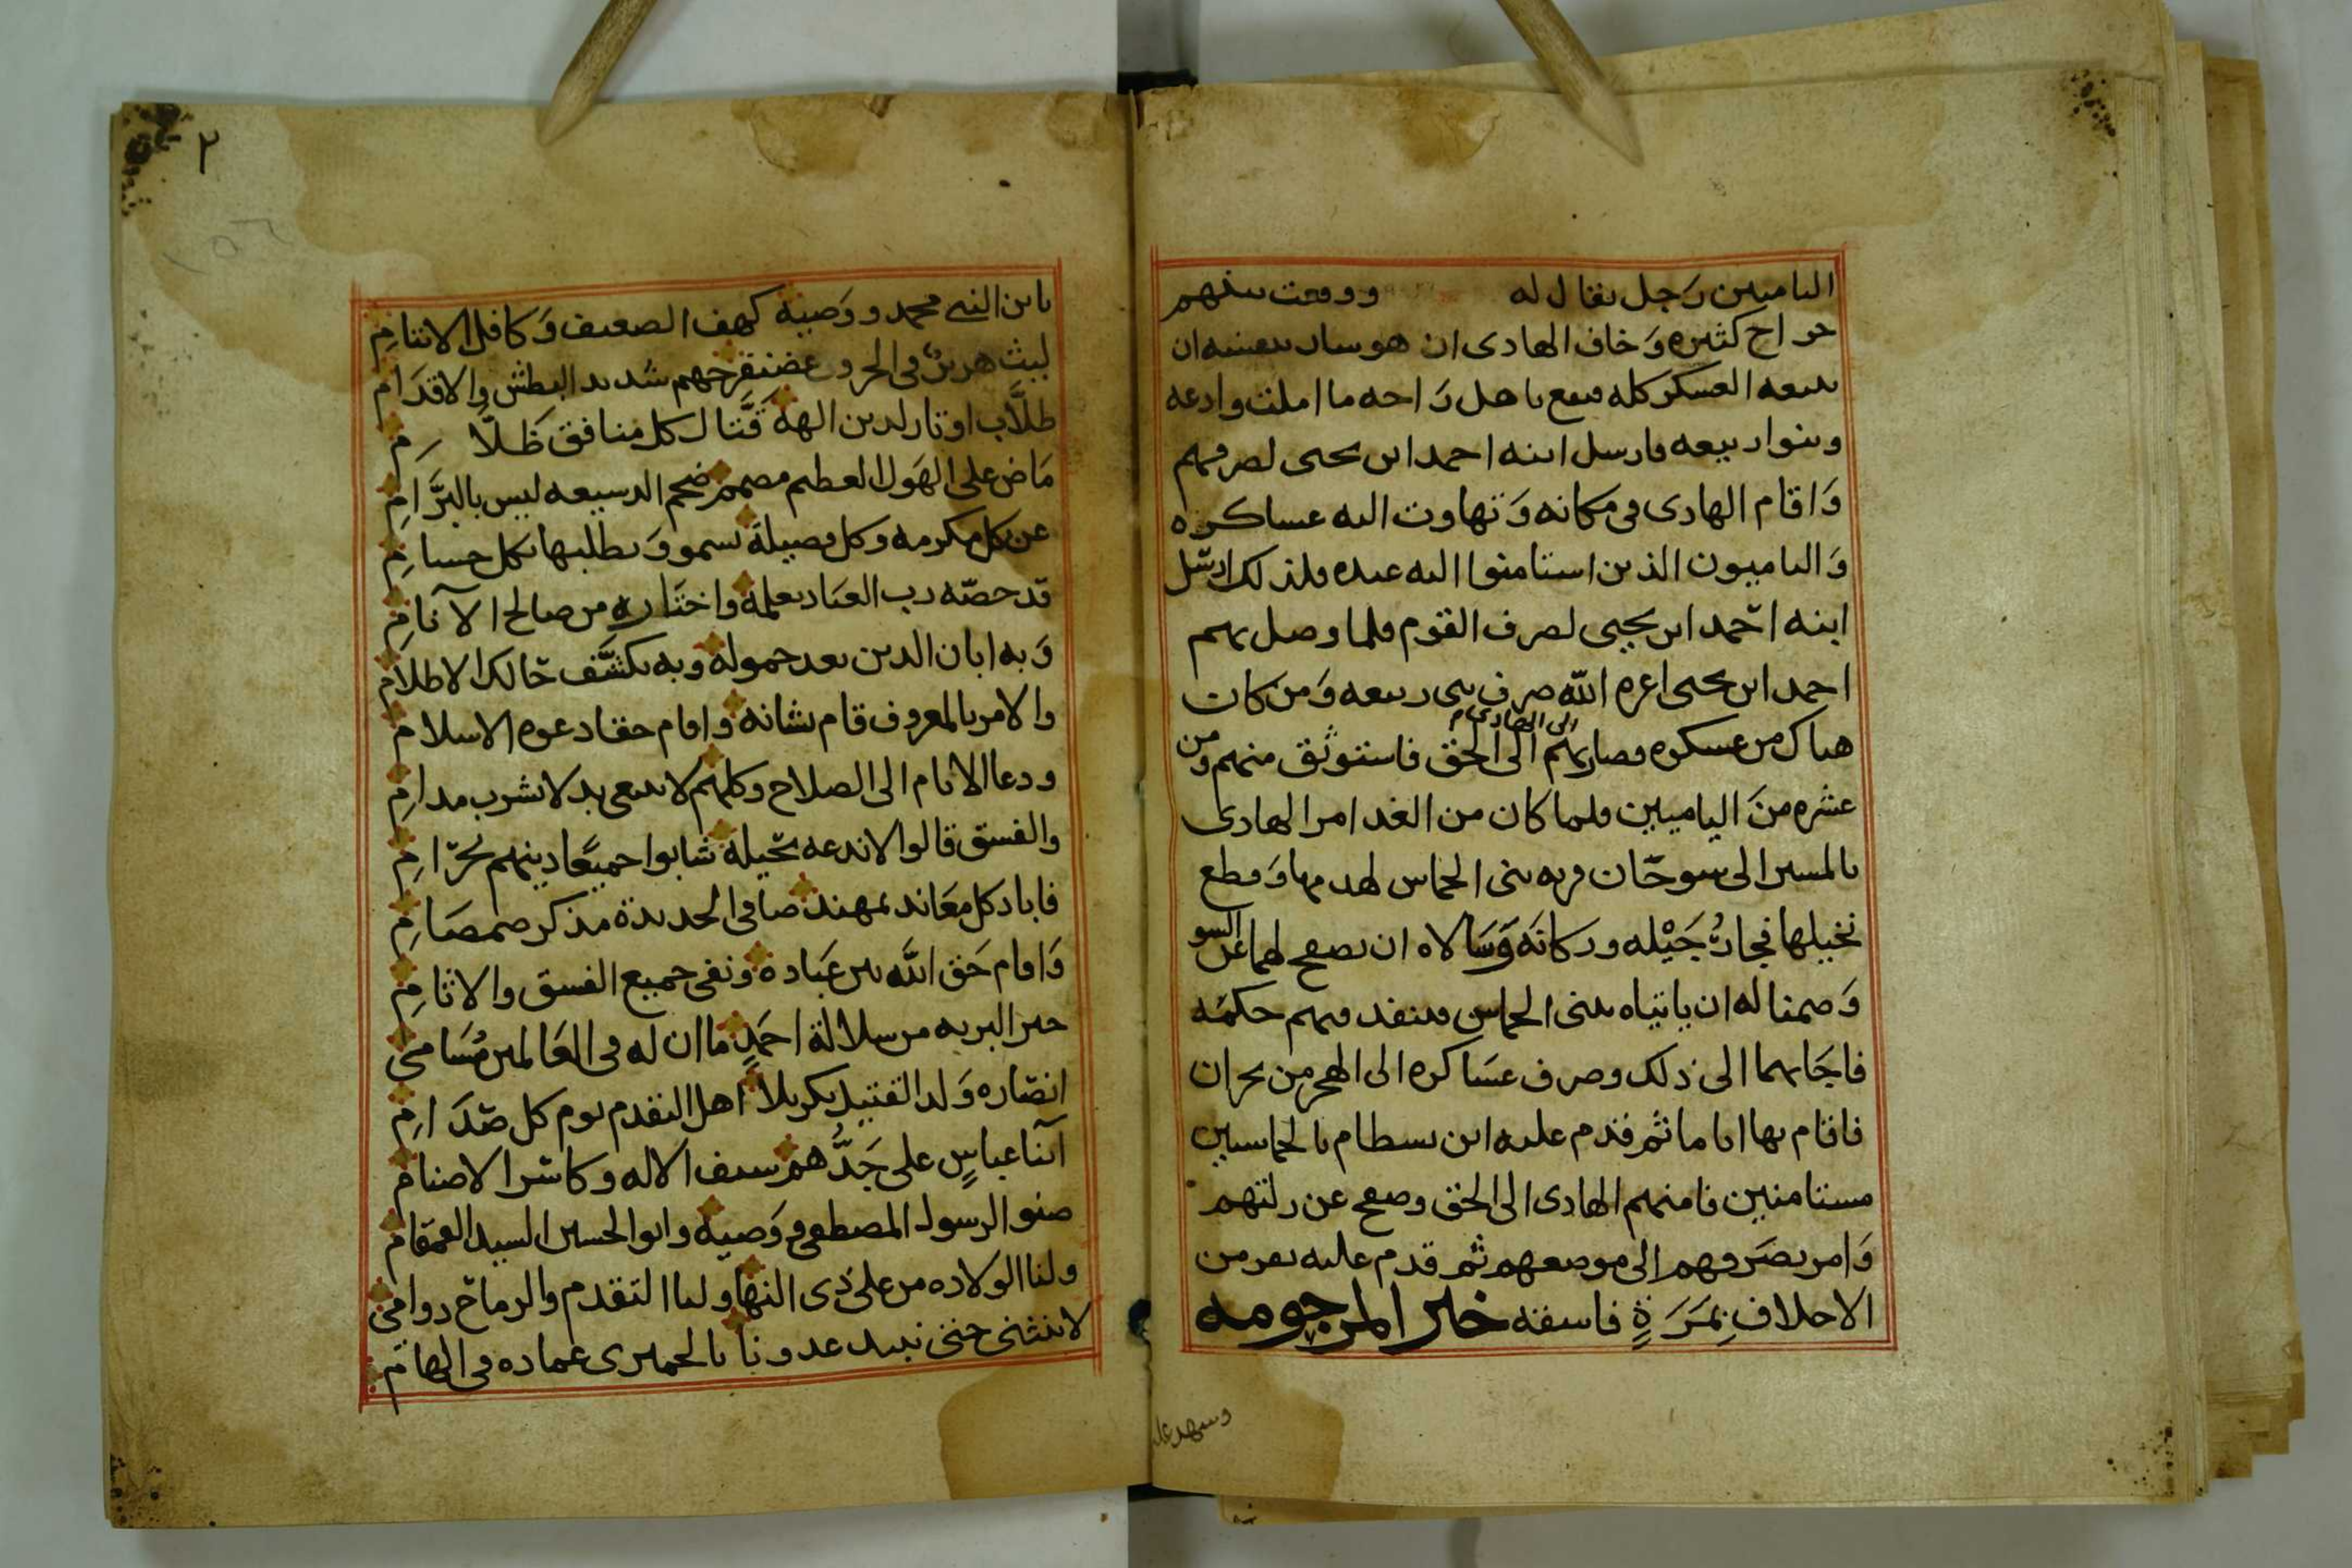 الياميين رَجل يقال له ووقعت بينهم
جراح كثيره وَخاف الهادى ان هو سار بنفسه ان
يتبعه العسكر كله فيقع باهل رَاحه ما املت وادعه
وبنوا ربيعه فارسل ابنه احمد ابن يحيى لصرفهم
وَاقام الهادى فى مكانه وَتهاوت اليه عساكره
وَالياميون الذين استامنوا اليه عبده فلذلك ارسَل
ابنه احَمد ابن يحيى لصرف القوم فلما وصل بهم
احمد ابن يحيى اعزه الله صرف بنى ربيعه وَمن كان
هناك من عسكره وصار بهم الى الحق فاستوثق منهم ومن
الى الهادى
عشره منَ الياميين فلما كان من الغد امر الهادى
بالمسير الى سوحَان قريه بنى الحماس لهدمها وَقطع
نخيلها فجارُ جَيْله وركانَه وَسَالاه ان يصفح لهما عن السو
وَضمنا له ان ياتياه ببنى الحماس فينفد فيهم حكمَه
فاجَابهما الى ذلك وصرف عسَاكره الى الهجر من نجران
فاقام بها اياما ثم قدم عليه ابن بسطام بالحماسيين
مستامنين فامنهم الهادى الى الحق وصفح عن زلتهم
وَامر بصَرفهم الى موضعهم ثم قدم عليه نفر من
الاحلاف بِمَرَةٍ فاسقه خبر المرجومه
وشهد عل
٢
يابن النبى محمد ووَصيه كهف الضعيف وَكافل الايتامِ
ليث هزبرٌ فى الحروب غضنفر جهم شديد البطش والاقدَام
طلَّاب اوتار لدين الهه قَتَّال كل منافق ظَلَّامِ
مَاض على الهَول العظيم مصمم ضخم الدسيعه ليس بالبرَّامِ
عن كل مكرمه وكل فضيلة يسمو وَيطلبها بكل حسامِ
قد خصّه رب العبَاد بعلمه واختَاره من صالح الآنامِ
وَبه ابان الدين بعد خموله وبه يكشَّف حَالك الاظلام
والامر بالمعروف قام بشانه واقام حقا دعوه الاسلام
ودعا الانام الى الصلاح وكلهم لا يدعى بد لا شرب مدامِ
والفسق قالوا لا ندعه بحَيلة شابوا جميعًا دينهم بحَرامِ
فاباد كل معَاند بمهند صافى الحديدة مذكر صمصَامِ
وَاقام حَق الله بين عبَاده ونفى جميع الفسق والاثامِ
خير البريه من سلالة احمَدٍ ما ان له فى العَالمين مُسَامى
انصَاره وَلد القتيل بكربلا اهل التقدم يوم كل صَدَامِ
آبنا عباسٍ على جَدُّهم سيف الاله وكاسَر الاصنام
صنو الرسول المصطفى ووَصيه وابو الحسين السيد القمقام
ولنا الولاده من على ذى النهى ولنا التقدم والرماحَ دوامى
لا ننثنى حتى نبيد عدونا بالحميرى عماده فى الهامِ